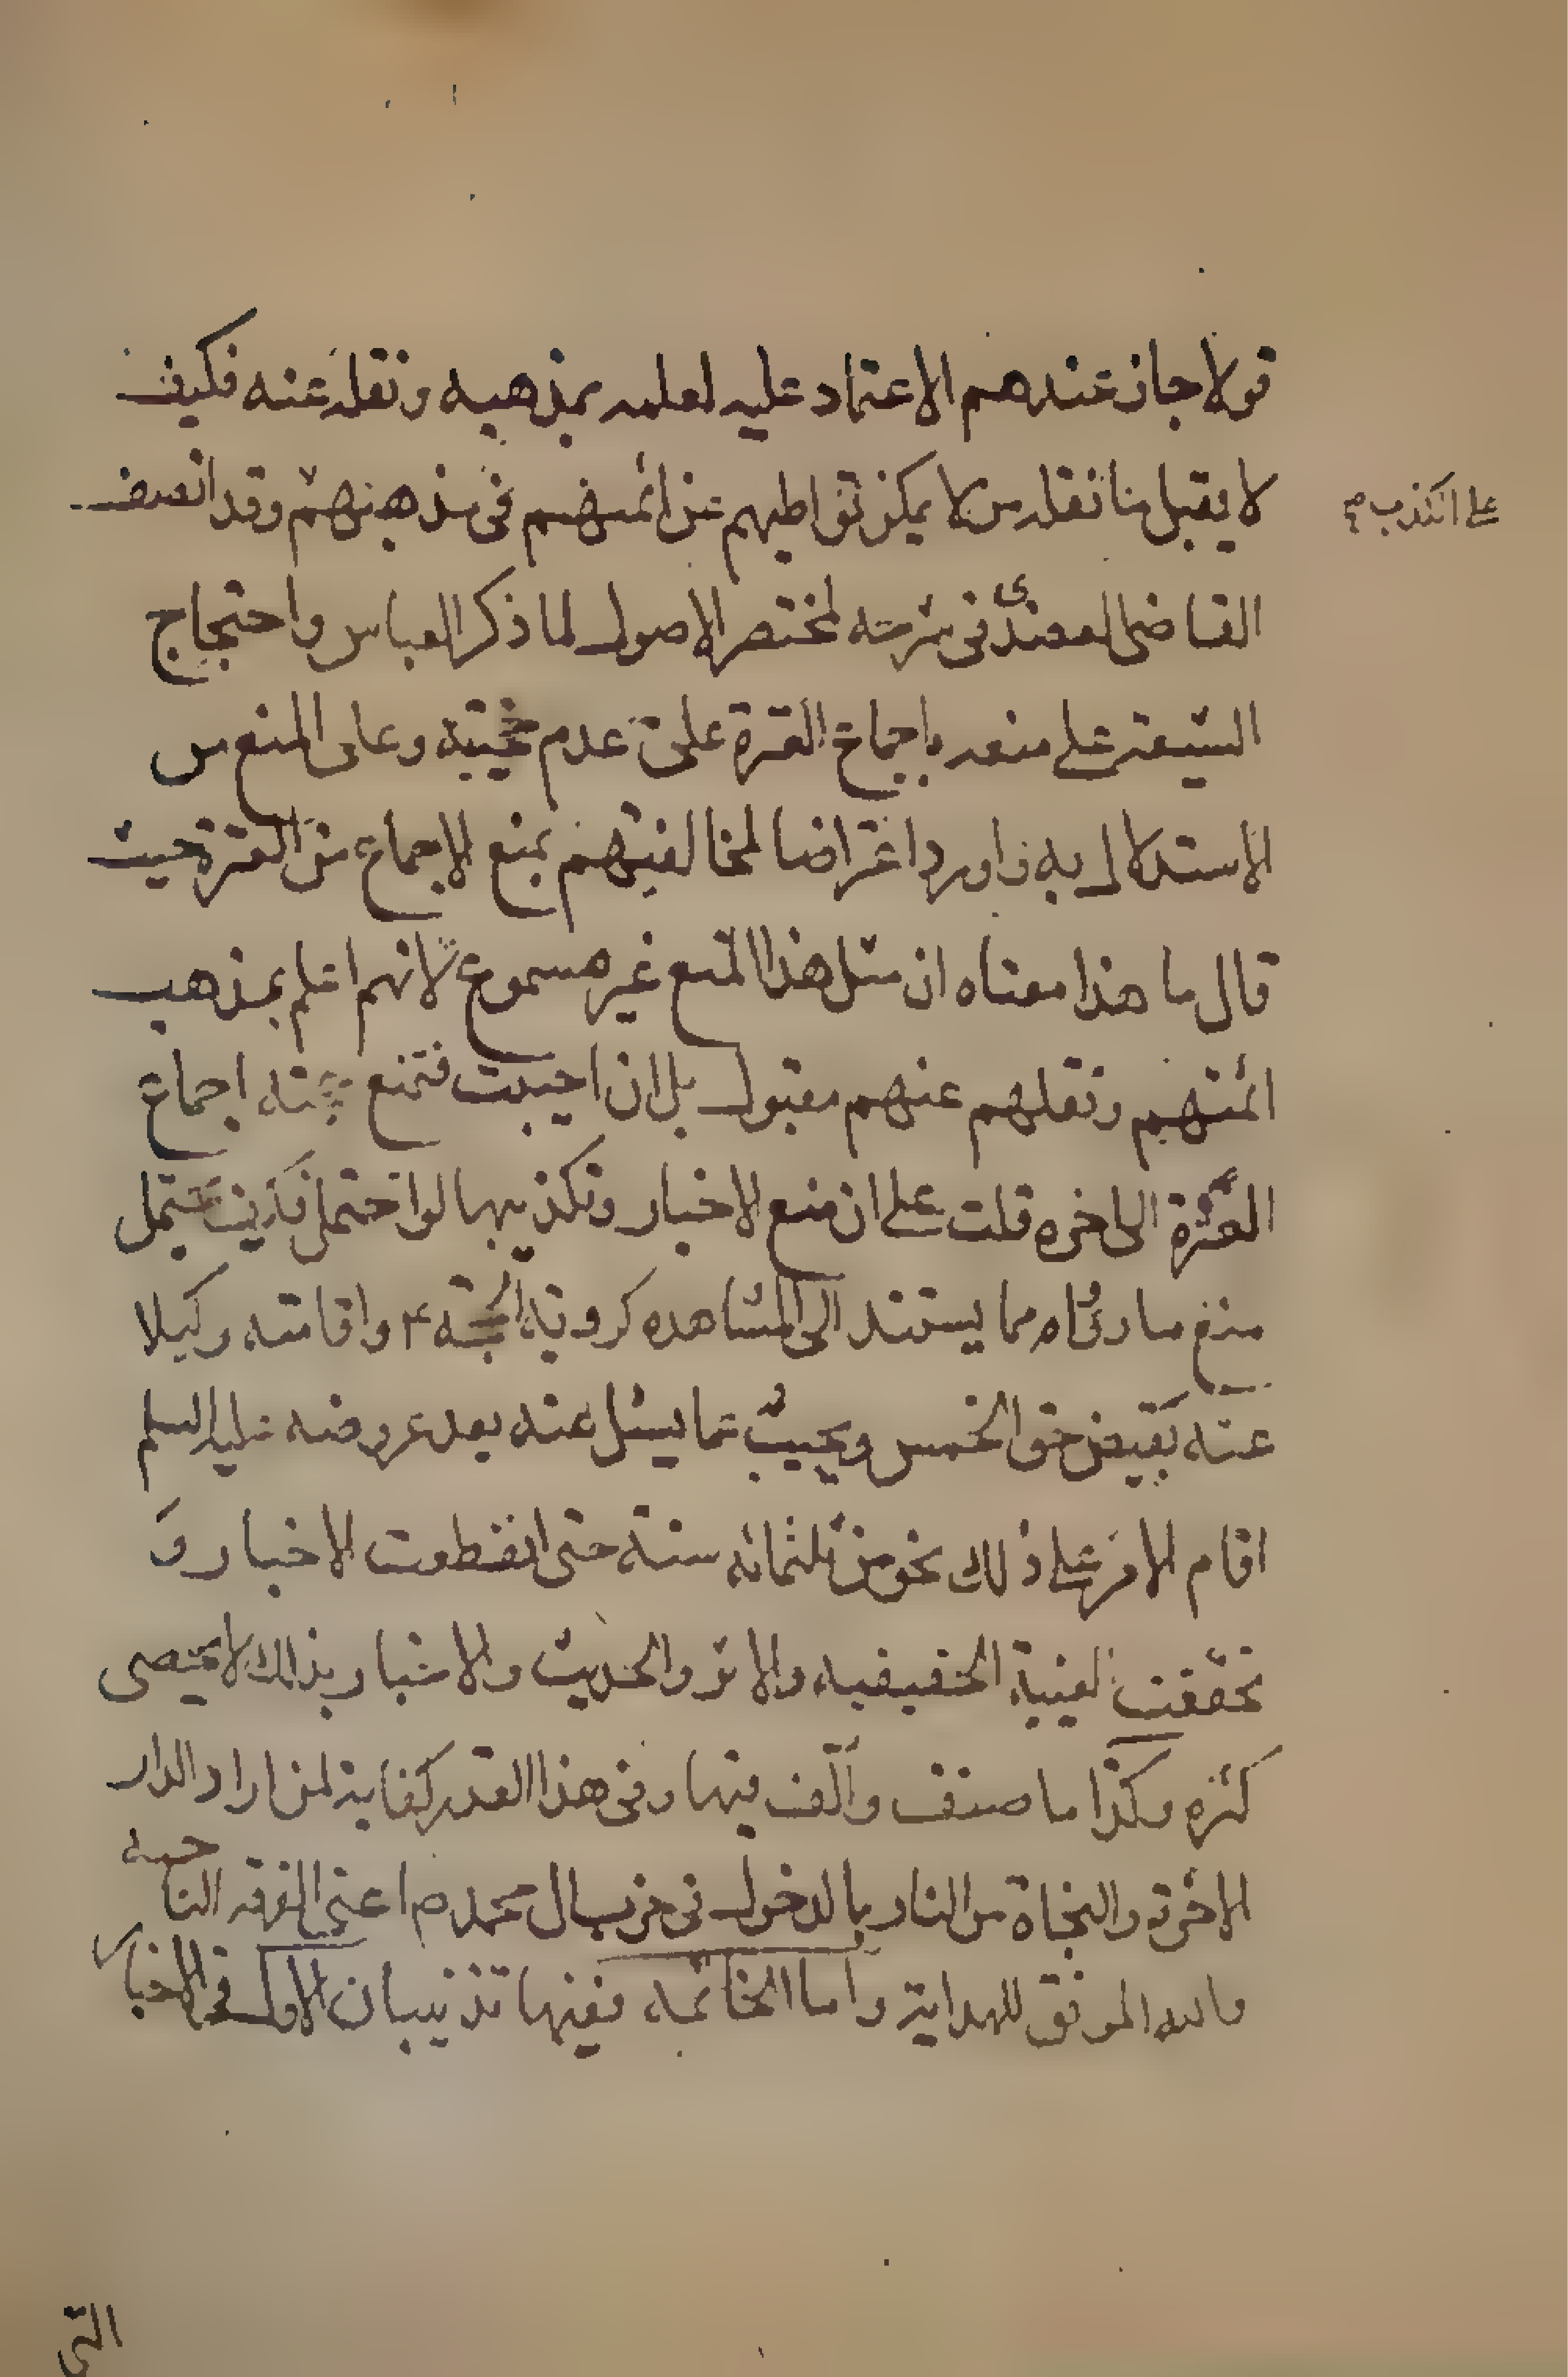 قولا جاز عندهم الاعتماد عليه لعلمه بمذهبه ونقله عنه فكيف
لا يقبل منا نقله من لا يمكن تواطيهم عن ائمتهم في مذهبهم وقد انصف
على الكذب
القاضي العضدي في شرحه لمختصر الاصول لما ذكر القياس واحتجاج
الشيعة على منعه باجماع العترة على عدم حجيته وعلى المنع من
الاستدلال به واورد اعتراضا لمخالفيهم بمنع الاجماع من العترة حيث
قال ما هذا معناه ان مثل هذا المنع غير مسموع لانهم اعلم بمذهب
ائمتهم ونقلهم عنهم مقبول بل ان اجيبت فتمنع اجماع
العترة الى اخره قلت على ان منع الاخبار وتكذيبها لو احتمل فكيف يحتمل
منع ما رواه مما يستند الى المشاهده كرويته الحجة ۴ واقامته وكيلا
عنه يقبض حق الخمس ويجيب عما يسئل عنه بعد عروضه عليه السلم
اقام الامر على ذلك نحو من ثلثمائه سنة حتى انقطعت الاخبار و
تحققت الغيبة الحقيقيه والاثر والحديث والاخبار بذلك لا يحصى
كثره وكذا ما صنف والف فيها وفي هذا القدر كفاية لمن اراد الدار
الاخرة والنجاة من النار بالدخول في حزب ال محمد ص اعني الفرقه الناجيه
والله الموفق للهداية واما الخاتمه ففيها تذنيبان الاول في الاخبار
التي